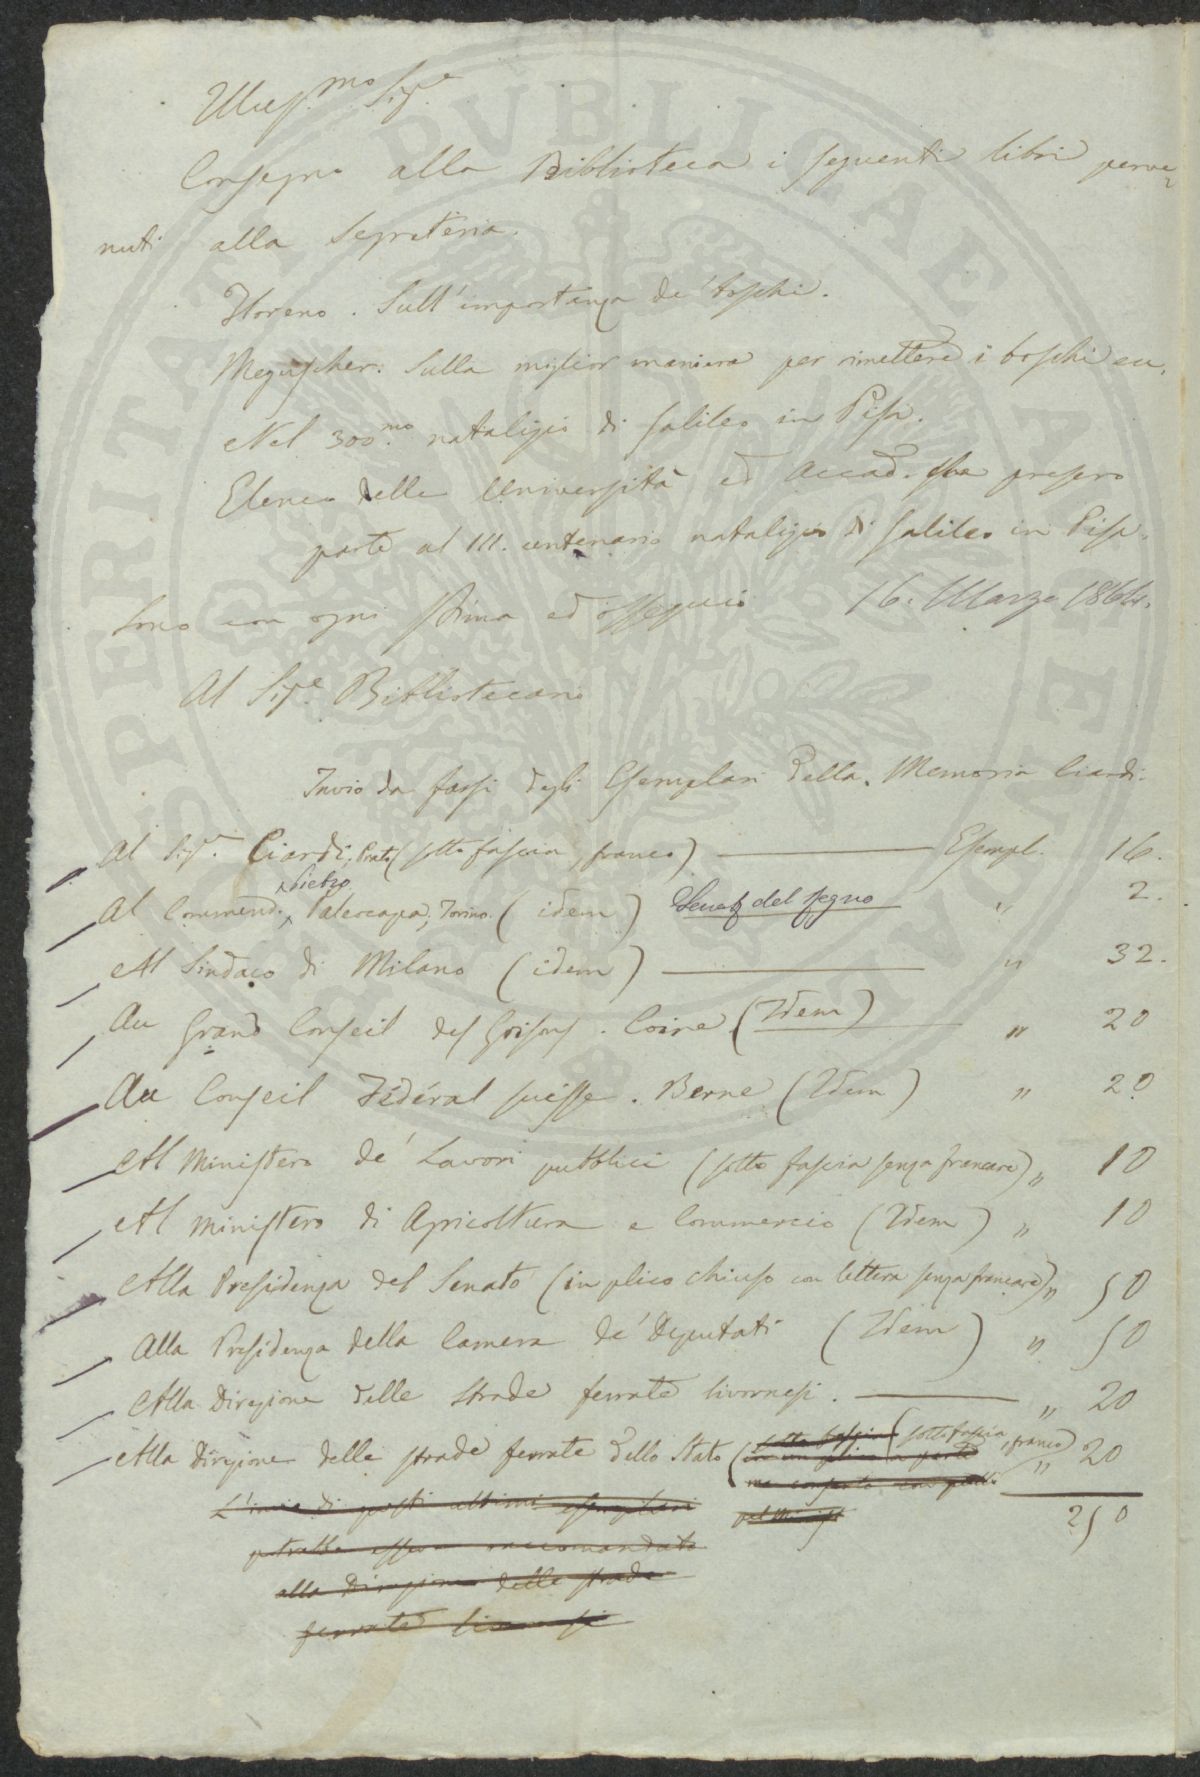 Illus.mo Sig.e
Consegno alla Biblioteca i seguenti libri perve-
nuti alla Segreteria.
Moreno. Sull'importanza de' boschi.
Meguscher. Sulla miglior maniera per rimettere i boschi ecc.
Nel 300.mo natalizio di Galileo in Pisa.
Elenco delle Università ed Accad. che presero
parte al III. centenario natalizio di Galileo in Pisa.
Sono con ogni stima ed ossequio 16. Marzo 1864.
Al Sig.e Bibliotecario
Invio da farsi degli Esemplari della Memoria Ciardi.
Al Sig.r Ciardi, Prato (sotto fascia franco) Esempl. 16.
Al Commend. Pietro Paleocapa, Torino. (idem) Senat del regno " 2.
Al Sindaco di Milano (idem) " 32.
Au Grand Conseil des Grisons. Coire (Idem) " 20
Au Conseil Fédéral suisse. Berne (Idem) " 20
Al Ministero de' Lavori pubblici (sotto fascia senza francare) " 10
Al Ministero di Agricoltura e Commercio (Idem) " 10
Alla Presidenza del Senato (in plico chiuso con lettera senza francare) " 50
Alla Presidenza della Camera de' Deputati (Idem) " 50
Alla Direzione delle strade ferrate livornesi. " 20
Alla Direzione delle strade ferrate dello Stato (sotto fascia franco) " 20
250
L'invio di questi ultimi esemplari
potrebbe essere raccomandato
alla Direzione delle strade
ferrate livornesi